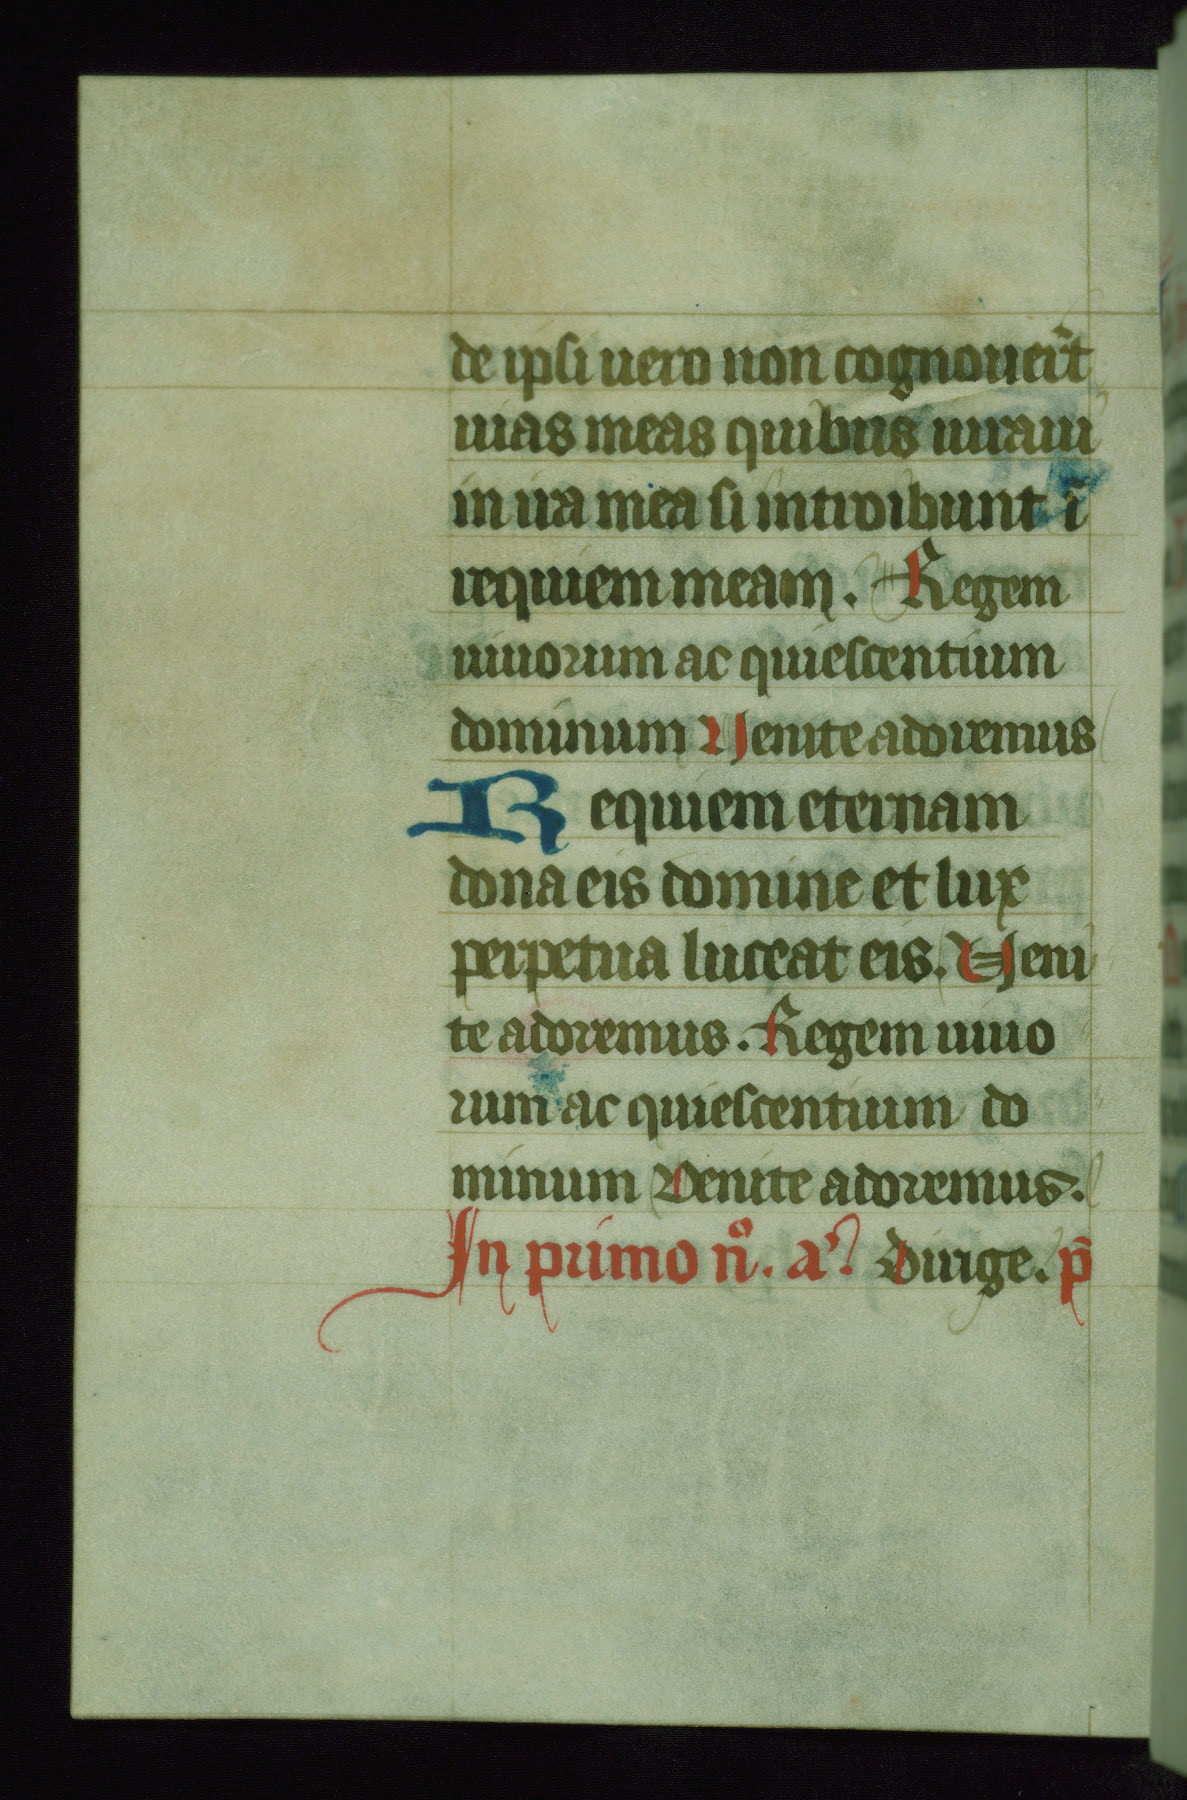 de ipsi uero non cognouer̄t
uias meas quibus iuraui
in ira mea si introibunt ī
requiem meam. Regem
uiuorum ac quiescentium
dominum Uenite adoremus
Requiem eternam
dona eis domine et lux
perpetua luceat eis. Ueni
te adoremus. Regem uiuo
rum ac quiescentium do
minum Venite adoremus.
In primo nͦ. aʾ. Dirige. p̄